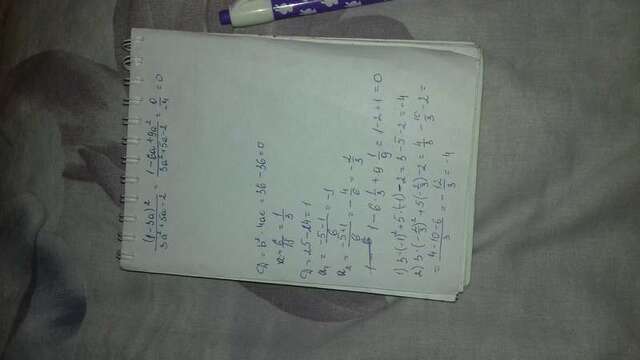 (1-3a)² / 3a²+5a-2 = 1-6a+9a² / 3a²+5a-2 = 0/-4 = 0
D = b² - 4ac = 36 - 36 = 0
= 1/3
D = 25 - 24 = 1
a₁ = -5-1 / 6 = -1
a₂ = -5+1 / 6 = -4/6 = -2/3
1 - 6 · 1/3 + 9 1/9 = 1-2+1 = 0
1) 3·(-1)² + 5·(-1) - 2 = 3 - 5 - 2 = -4
2) 3·(-2/3)² + 5(-2/3) - 2 = 4/3 - 10/3 - 2 =
= 4-10-6 / 3 = -12/3 = -4